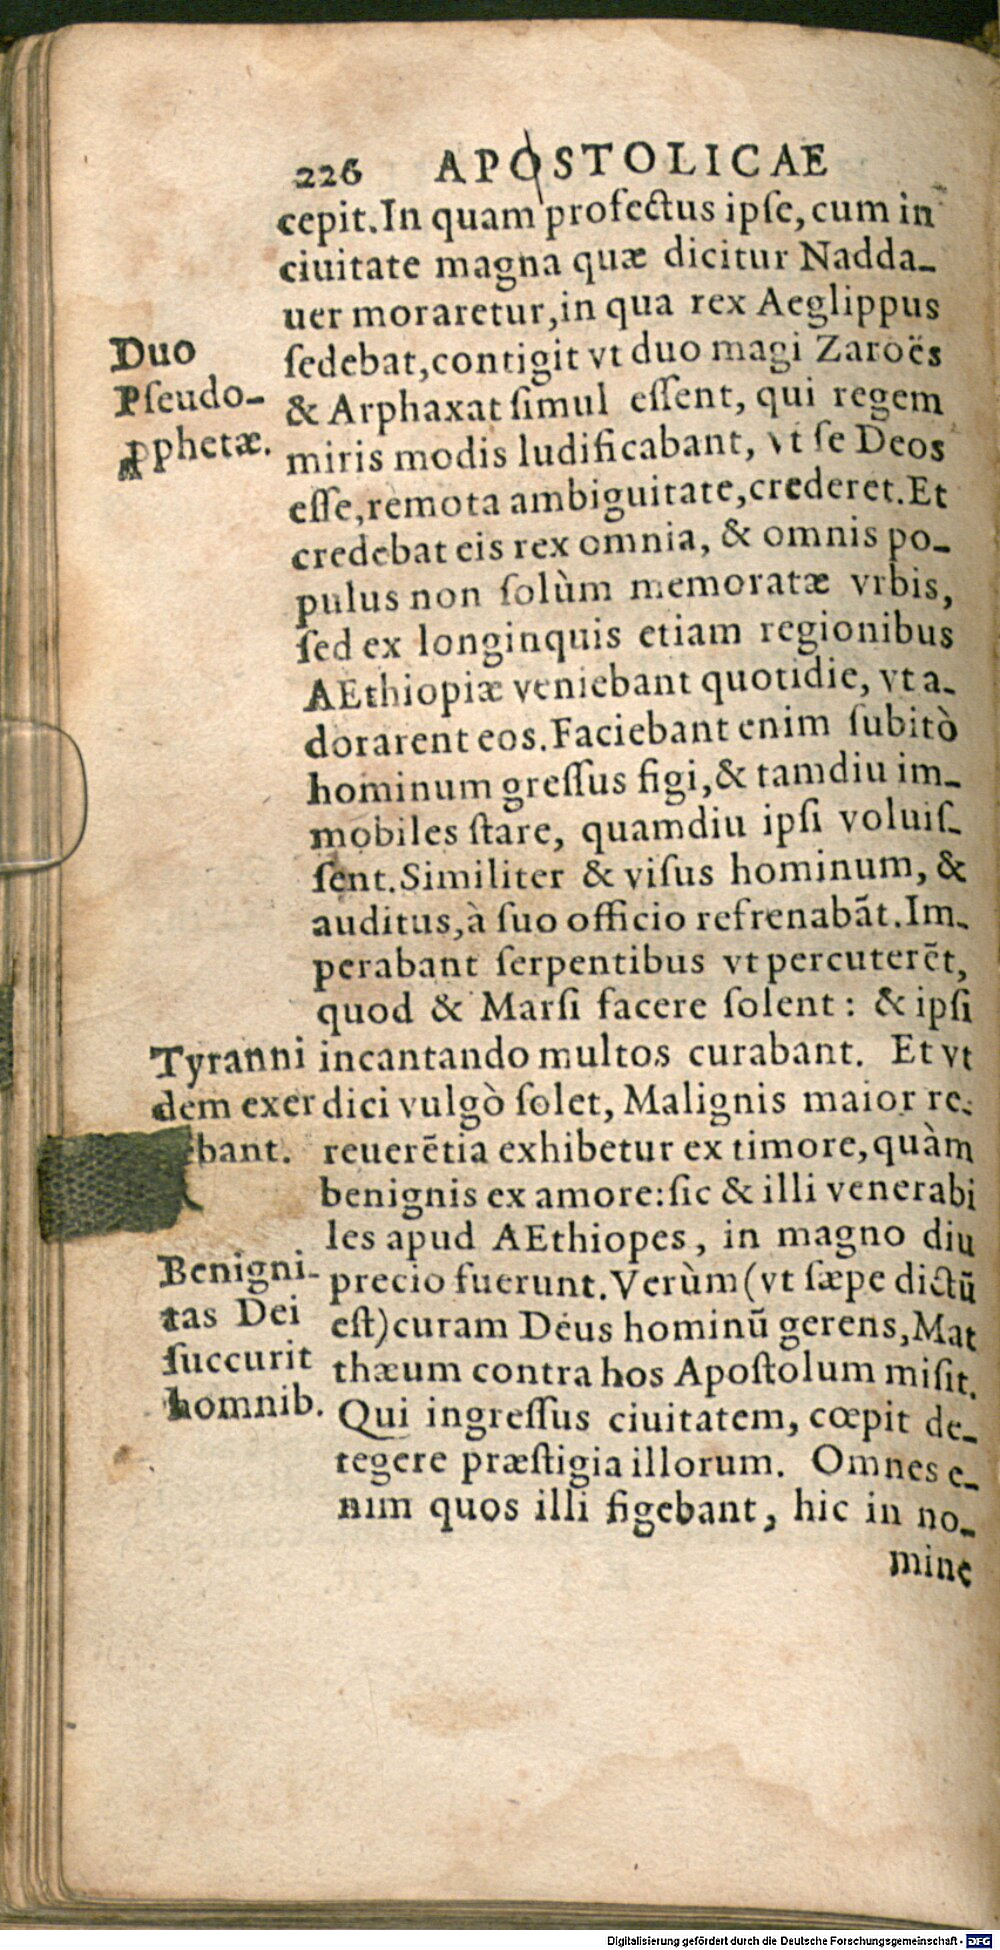 226 APOSTOLICAE
cepit. In quam profectus ipſe, cum in
ciuitate magna quæ dicitur Nadda-
uer moraretur, in qua rex Aeglippus
ſedebat, contigit vt duo magi Zaroës
& Arphaxat ſimul eſſent, qui regem
miris modis ludificabant, vt ſe Deos
eſſe, remota ambiguitate, crederet. Et
credebat eis rex omnia, & omnis po-
pulus non ſolùm memoratæ vrbis,
ſed ex longinquis etiam regionibus
AEthiopiæ veniebant quotidie, vt a-
dorarent eos. Faciebant enim ſubitò
hominum greſſus figi, & tamdiu im-
mobiles ſtare, quamdiu ipſi voluiſ-
ſent. Similiter & viſus hominum, &
auditus, à ſuo officio refrenabãt. Im-
perabant ſerpentibus vt percuterẽt,
quod & Marſi facere ſolent: & ipſi
incantando multos curabant. Et vt
dici vulgò ſolet, Malignis maior re-
reuerẽtia exhibetur ex timore, quàm
benignis ex amore: ſic & illi venerabi
les apud AEthiopes, in magno diu
precio fuerunt. Verùm (vt ſæpe dictũ
eſt) curam Deus hominũ gerens, Mat
thæum contra hos Apoſtolum miſit.
Qui ingreſſus ciuitatem, cœpit de-
tegere præſtigia illorum. Omnes e-
nim quos illi figebant, hic in no-
mine
Duo
Pſeudo-
ꝓphetæ.
Tyranni
dem exer
ebant.
Benigni-
tas Dei
ſuccurit
homnib.
Digitalisierung gefördert durch die Deutsche Forschungsgemeinschaft - DFG